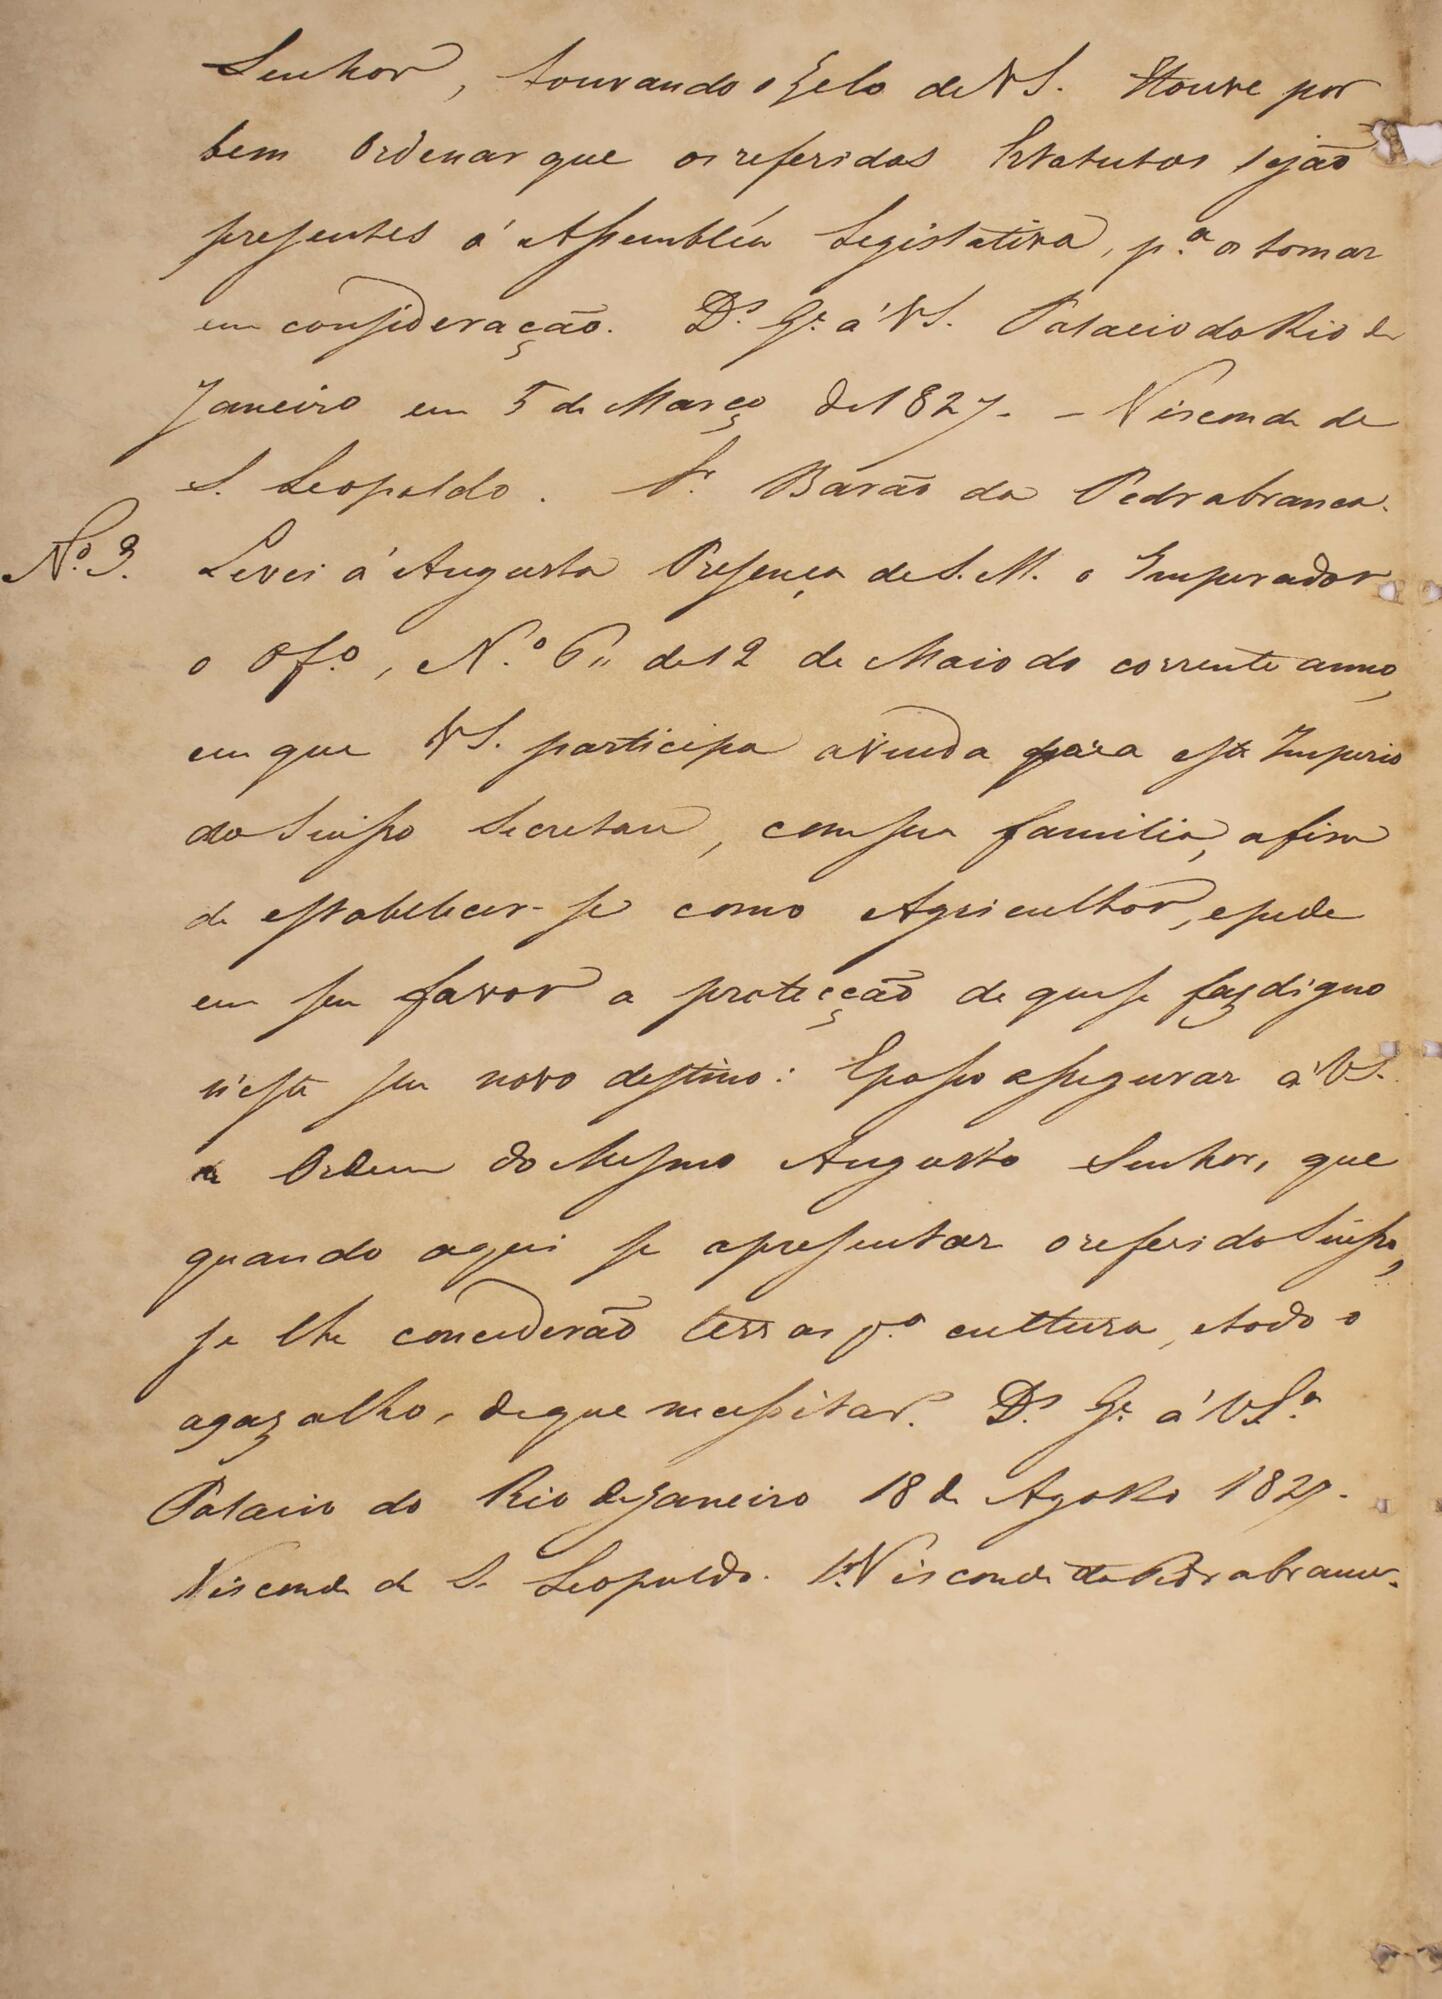 Senhor, louvando o Zelo de VS. Houve por
bem Ordenar que os referidos Estatutos sejão
presentes á Assembléa Legislativa, p.ª os tomar
em consideração. D.s G.e a VS. Palacio do Rio de
Janeiro em 5 de Março de 1827. - Visconde de
S. Leopoldo. S.r Barão da Pedrabranca.
N.o 3. Levei á Augusta Presença de S. M. o Imperador
o Off.o, N.o 6,, de 12 de Maio do corrente anno,
em que VS. participa a vinda para este Imperio
do Suisso Secretan, com sua familia, afim
de estabelecer-se como Agricultor, e pede
em seu favor a protecção de que se faz digno
n'este seu novo destino: E posso assegurar a VS.
de Ordem do Mesmo Augusto Senhor, que
quando aqui se apresentar o referido Suisso,
se lhe concederão terras p.a cultura, e todo o
agazalho, de que necessitar. D.s G.e á VS.a
Palacio do Rio de Janeiro 18 de Agosto 1827.
Visconde de S. Leopoldo. S.r Visconde da Pedrabranca.